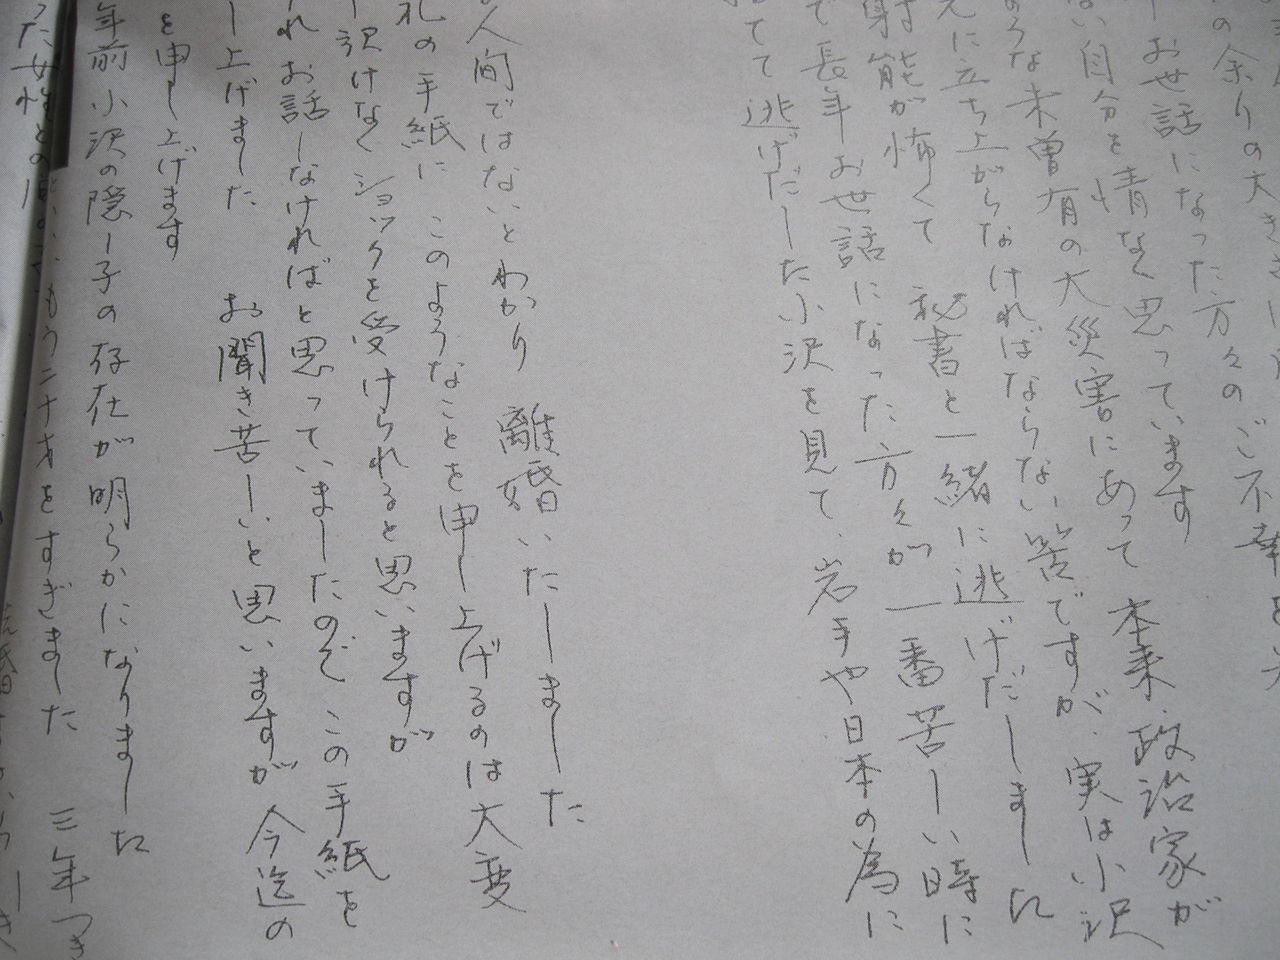 の余りの大きさに
の方々のご不幸を
お世話になった
ない自分を情なく思っています
ような未曽有の大災害にあって本来、政治家が
に立ち上がらなければならない筈ですが、実は小沢
射能が怖くて 秘書と一緒に逃げだしました
で長年お世話になった方々が一番苦しい時に
捨てて逃げだした小沢を見て、岩手や日本の為に
人間ではないとわかり 離婚いたしました
礼の手紙に このようなことを申し上げるのは大変
し訳けなく ショックを受けられると思いますが
れお話しなければと思っていましたのでこの手紙を
し上げました お聞き苦しいと思いますが今迄の
を申し上げます
年前小沢の隠し子の存在が明らかになりました
もう二十才をすぎました 三年つき
た女性との